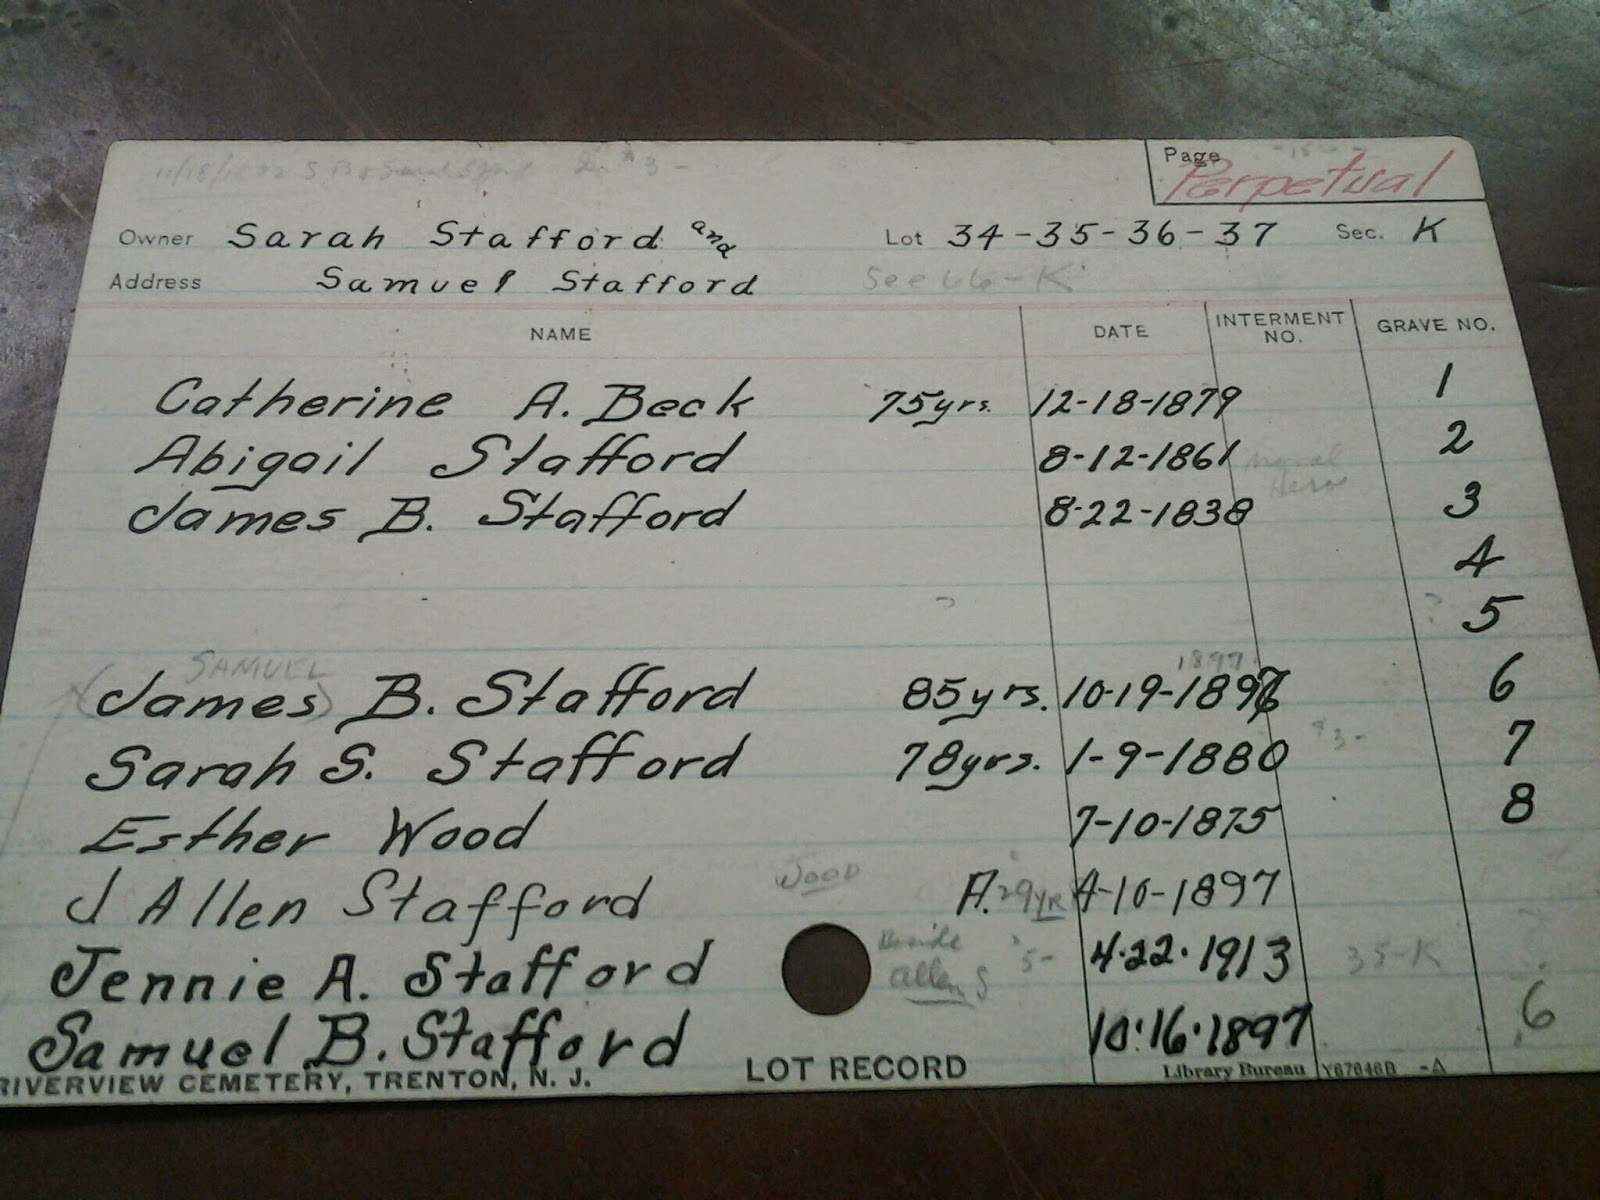 Page
Perpetual
Owner Sarah Stafford and Lot 34-35-36-37 Sec. K
Address Samuel Stafford See 66-K
NAME DATE INTERMENT NO. GRAVE NO.
Catherine A. Beck 75yrs. 12-18-1879 1
Abigail Stafford 8-12-1861 2
Naval Hero
James B. Stafford 8-22-1838 3
4
? 5
SAMUEL 1897
(James) B. Stafford 85yrs. 10-19-1897 6
Sarah S. Stafford 78yrs. 1-9-1880 7
Esther Wood 7-10-1875 8
J Allen Stafford WOOD A. 29yr 4-10-1897
Jennie A. Stafford Beside Allen S 4-22-1913 35-K
Samuel B. Stafford 10-16-1897 6
RIVERVIEW CEMETERY, TRENTON, N. J. LOT RECORD Library Bureau Y67646D -A